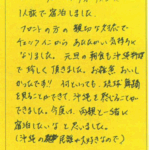 1人旅で宿泊しました。
フロントの方の親切な対応で
チェックインからあたたかい気持ちに
なりました。元旦の朝食も沖縄料理
で嬉しく頂きました。お雑煮おいし
かったです!! 何といっても、琉球舞踊
を見ることができて、沖縄を感じることが
できました。今度は、両親と一緒に
宿泊したいなと思いました。
(沖縄の 民謡が大好きなので)